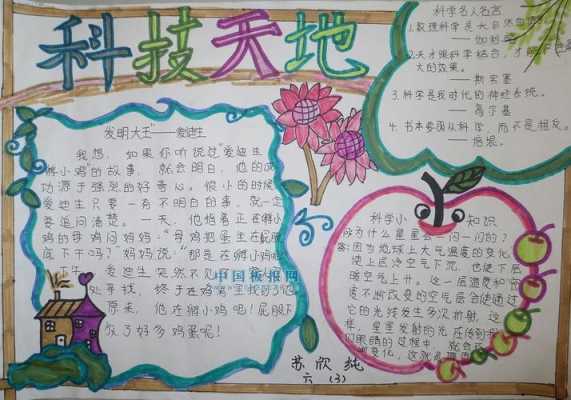 科技天地
科学名人名言
1.数理科学是大自然的语言。
——伽利略
2.天才跟科学结合,才
大的效果。
——斯宾塞
3.科学是我时代的神经系统。
——高尔基
4.书本要从科学,而不是相反。
——培根。
发明大王——爱迪生
我想,如果你听说过“爱迪生
孵小鸡”的故事,就会明白,他的成
功源于强烈的好奇心。很小的时候
爱迪生只要一有不明白的事,就一定
要追问清楚。一天,他指着正在孵小
鸡的母鸡问妈妈:“母鸡把蛋坐在屁股
底下干吗?”妈妈说:“那是在孵小鸡呢
爱迪生突然不见了
处寻找,终于在鸡窝里找到了他
原来,他在孵小鸡呢!屁股下
放了好多鸡蛋呢!
中国板报网
科学小知识
问:为什么星星会一闪一闪的?
答:因为地球上大气温度的变化
使上层冷空气下沉,也使下层
暖空气上升。这一层温度和密
度不断改变的空气层会使通过
它的光线发生多次折射,这
样,星星发射的光在传到我
们眼睛的过程中,就会
变化,这就是
苏欣纯
六(3)